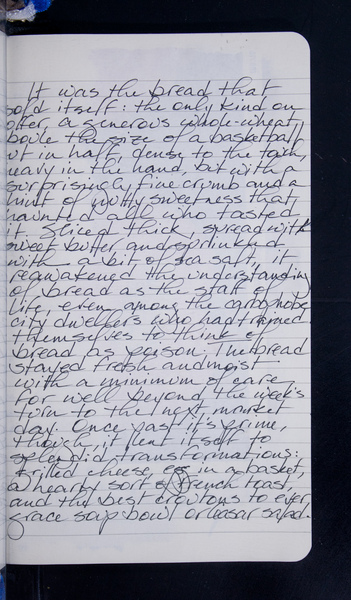 It was the bread that
sold itself: the only kind on
offer, a generous whole-wheat
boule the size of a basketball
cut in half, dense to the touch,
heavy in the hand, but with a
surprisingly fine crumb and a
hint of nutty sweetness that
haunted all who tasted
it. Sliced thick, spread with
sweet butter and sprinkled
with a bit of sea salt, it
reawakened the understanding
of bread as the staff of
life, even among the carbophobe
city dwellers who had trained
themselves to think of
bread as poison. The bread
stayed fresh and moist
with a minimum of care
for well beyond the week's
turn to the next market
day. Once past it's prime,
though, it lent itself to
splendid transformations:
grilled cheese, egg in a basket,
a hearty sort of French toast,
and the best croutons to ever
grace soup bowl or ceasar salad.